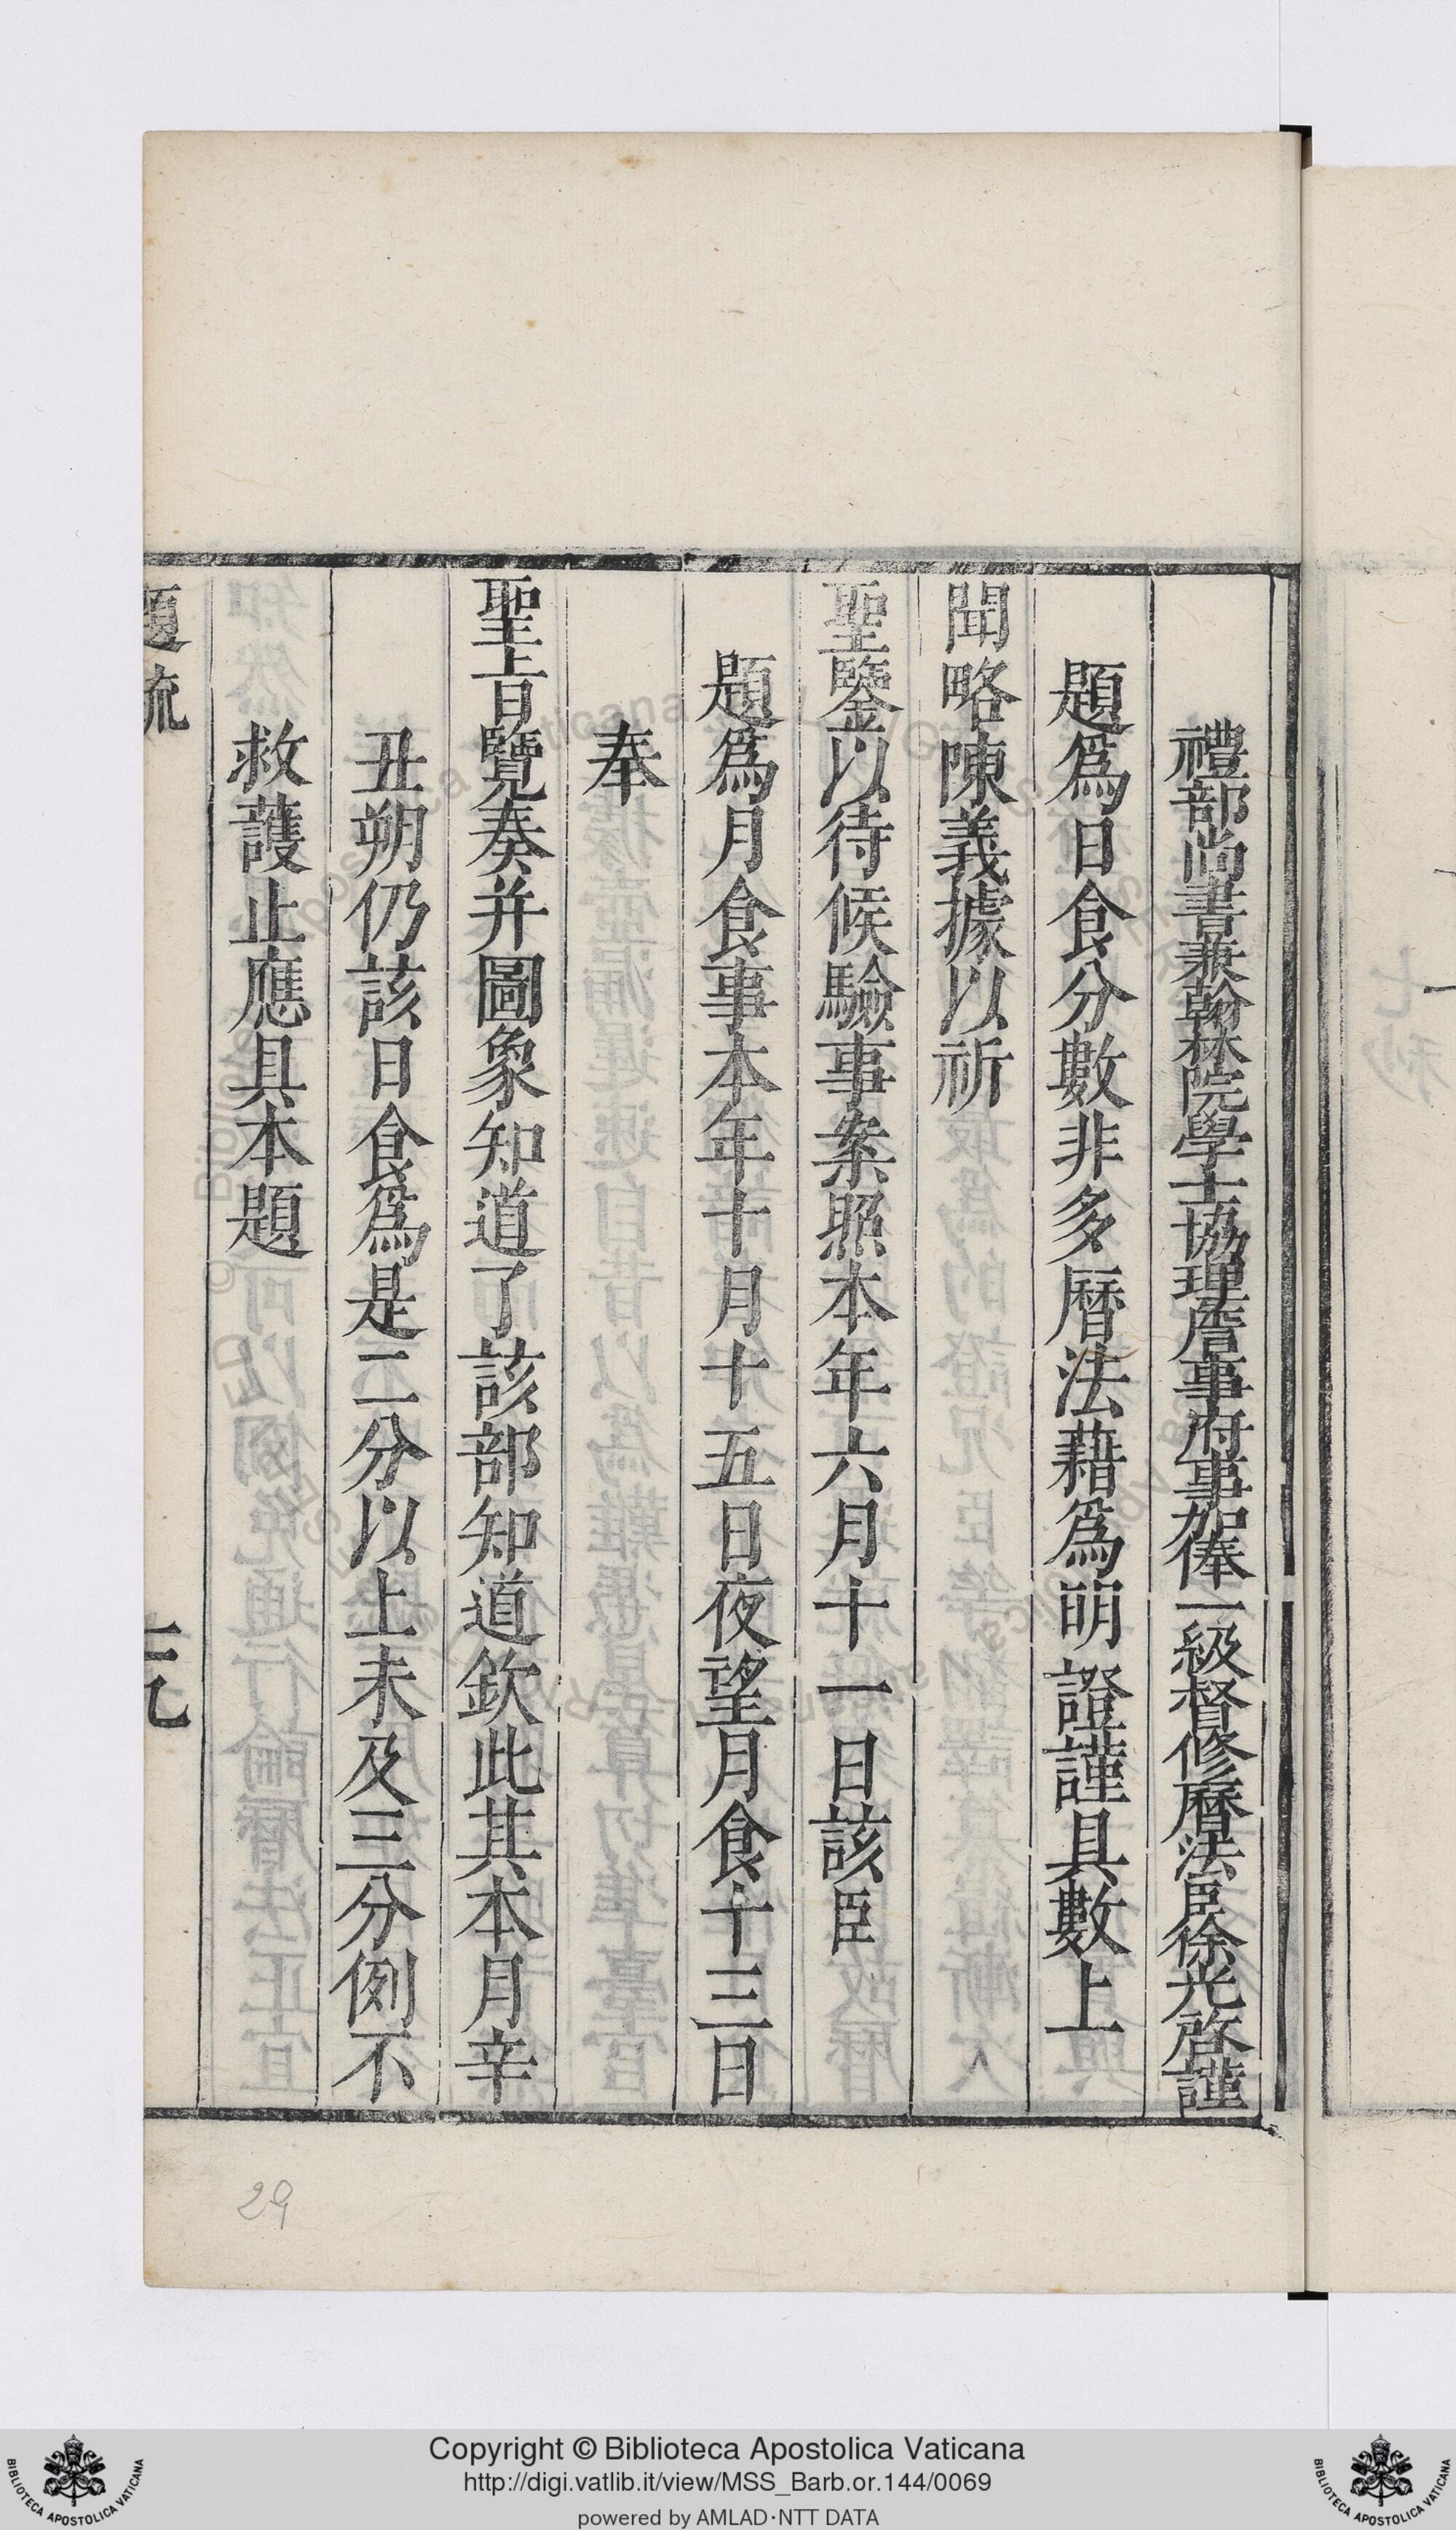 禮部尚書兼翰林院學士協理詹事府事加俸一級督修曆法臣徐光啓謹
題爲日食分數非多曆法藉爲明證謹具數上
聞略陳義據以祈
聖鑒以待候驗事案照本年六月十一日該臣
題爲月食事本年十月十五日夜望月食十三日
奉
聖旨覽奏并圖象知道了該部知道欽此其本月辛
丑朔仍該日食爲是二分以上未及三分例不
救護止應具本題
題疏
29
Copyright © Biblioteca Apostolica Vaticana
http://digi.vatlib.it/view/MSS_Barb.or.144/0069
powered by AMLAD·NTT DATA
BIBLIOTECA APOSTOLICA VATICANA
BIBLIOTECA APOSTOLICA VATICANA